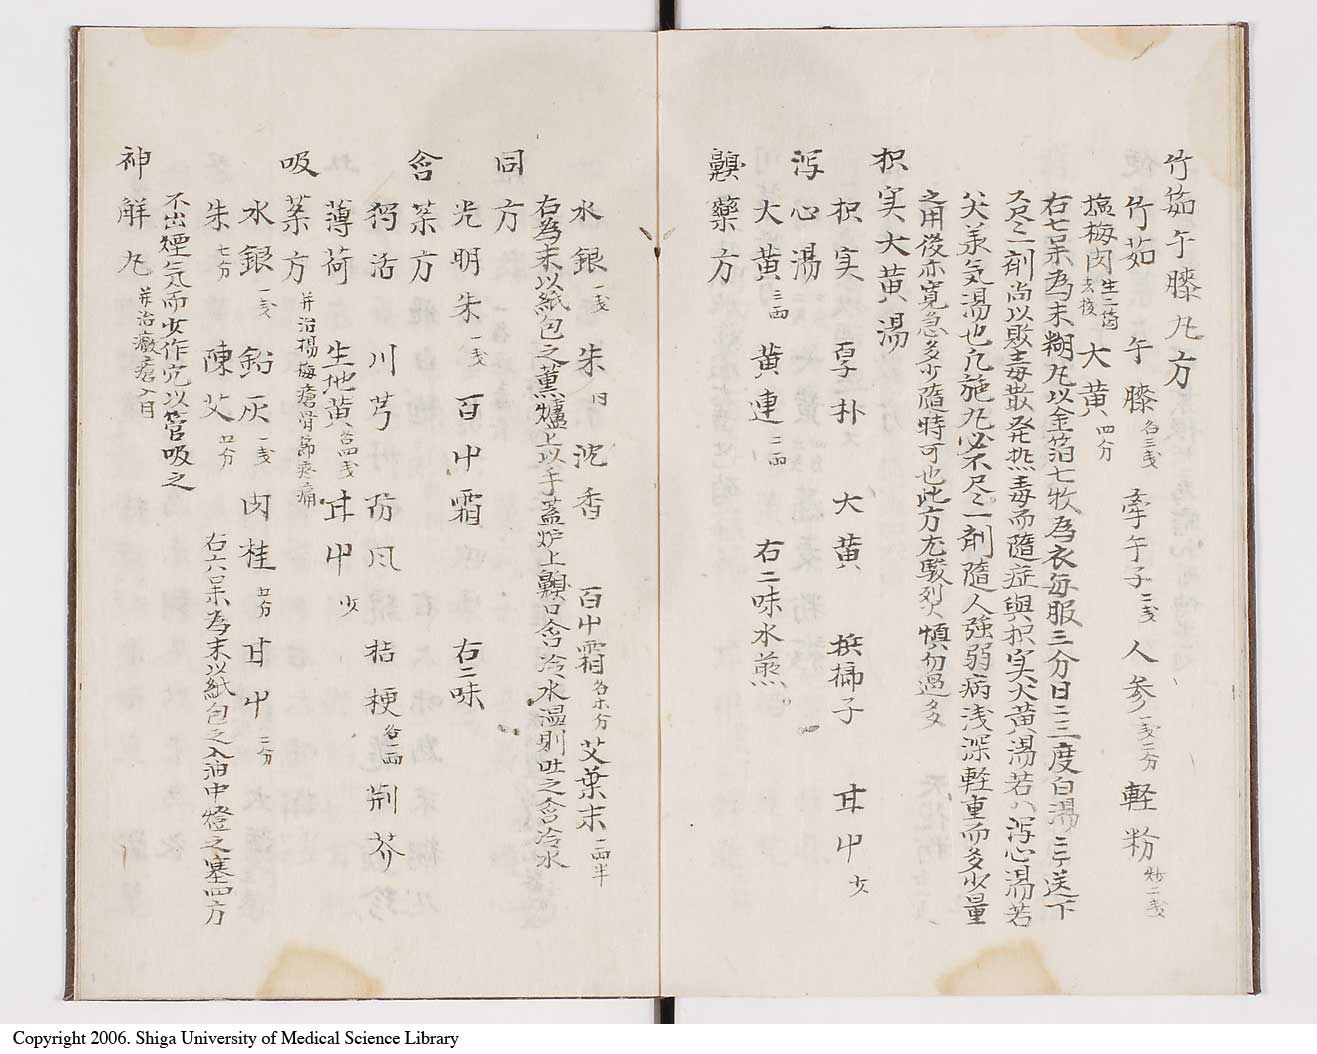 竹茹午膝丸方
竹茹 午膝各三戔 牽午子二戔 人参一戔二分 軽粉炒二戔
塩梅肉生二箇去核 大黄四分
右七呆為末糊丸以金箔七牧為衣毎服三分日二三度白湯ニテ送下
又尽二剤尚以敗毒散発𤍠毒而隨症與枳実大黄湯若ハ瀉心湯若
父羕気湯也凢施丸必不尽二剤隨人強弱病浅深軽重而多少量
之用後亦寛急多少隨時可也此方尤駿烈慎勿過多
枳実大黄湯
枳実 厚朴 大黄 梹榔子 甘中少
瀉心湯
大黄三両 黄連二両 右二味水煎
齅薬方
水銀一戔 朱〃 沈香 百中霜各六分 艾葉末一両半
右為末以紙包之薫爐上以手蓋炉上齅口含冷水温則吐之含冷水
同方
光明朱一戔 百中霜 右二味
含薬方
独活 川芎 防風 桔梗各一両 荊芥
薄荷 生地黄各四戔 甘中少
吸薬方并治楊梅瘡骨節疼痛
水銀一戔 鉛灰一戔 肉桂五分 甘中三分
朱七分 陳艾五分 右六呆為末以紙包之入油中燈之塞四方
不出煙気而少作穴以管吸之
神解丸并治癥瘡入目
Copyright 2006. Shiga University of Medical Science Library